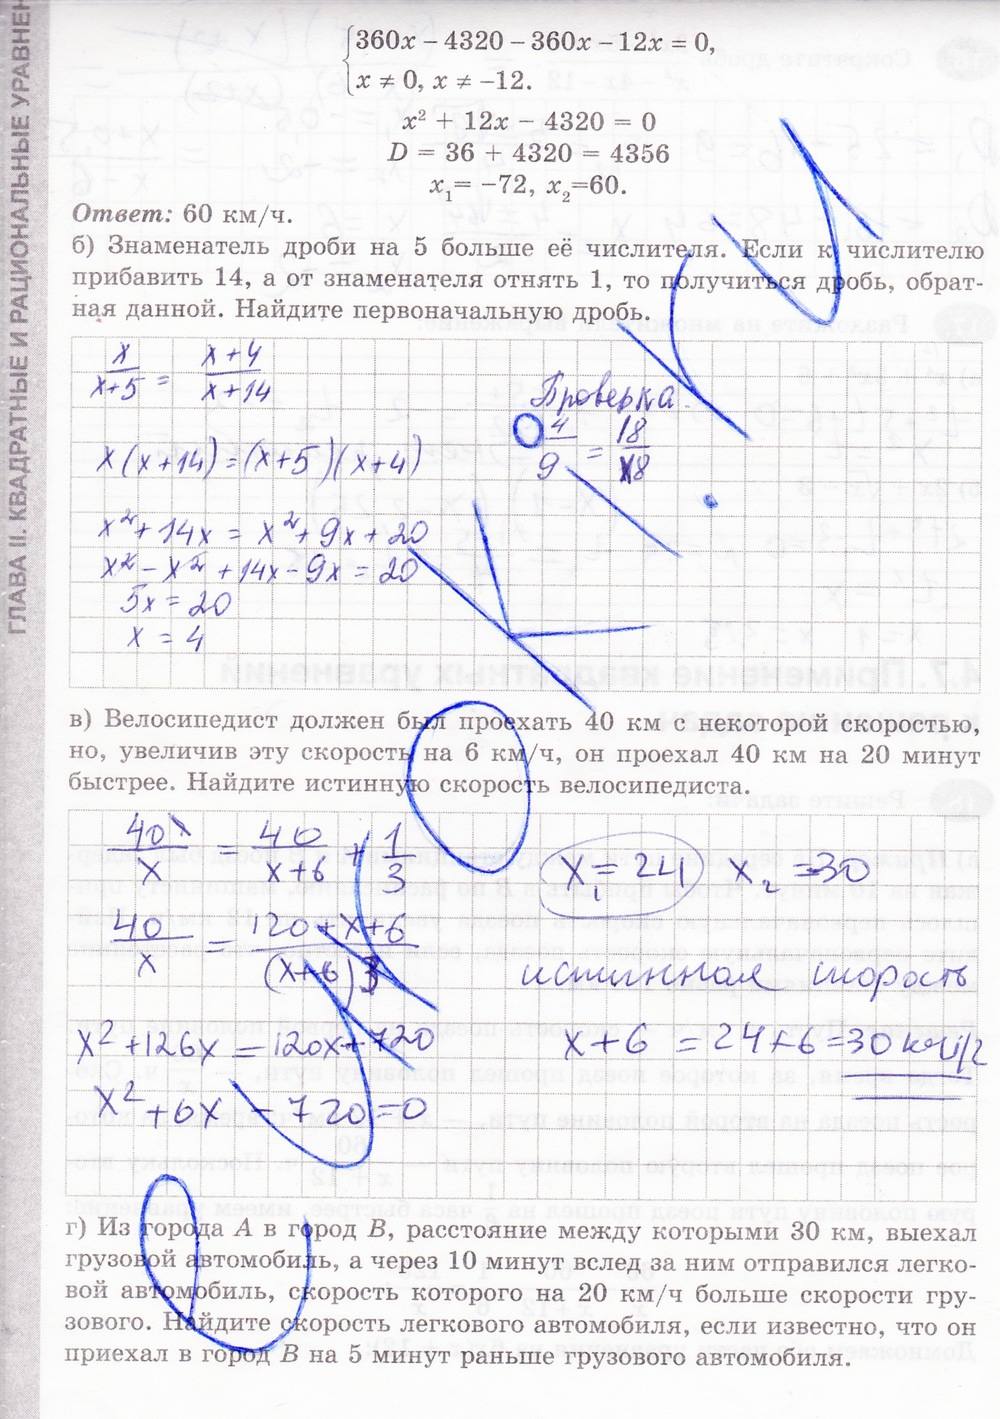 ГЛАВА II. КВАДРАТНЫЕ И РАЦИОНАЛЬНЫЕ УРАВНЕН
360x – 4320 – 360x – 12x = 0,
x ≠ 0, x ≠ –12.
x² + 12x – 4320 = 0
D = 36 + 4320 = 4356
x₁= –72, x₂=60.
Ответ: 60 км/ч.
б) Знаменатель дроби на 5 больше её числителя. Если к числителю
прибавить 14, а от знаменателя отнять 1, то получиться дробь, обрат-
ная данной. Найдите первоначальную дробь.
x/(x+5) = (x+4)/(x+14)
x(x+14)=(x+5)(x+4)
x²+14x = x²+9x+20
x²-x²+14x-9x=20
5x=20
x=4
Проверка
4/9 = 18/18
в) Велосипедист должен был проехать 40 км с некоторой скоростью,
но, увеличив эту скорость на 6 км/ч, он проехал 40 км на 20 минут
быстрее. Найдите истинную скорость велосипедиста.
40/x = 40/(x+6) + 1/3
40/x = (120+x+6)/((x+6)3)
x²+126x=120x+720
x²+6x-720=0
x₁=24 x₂=-30
истинная скорость
x+6=24+6=30 км/г
г) Из города А в город В, расстояние между которыми 30 км, выехал
грузовой автомобиль, а через 10 минут вслед за ним отправился легко-
вой автомобиль, скорость которого на 20 км/ч больше скорости гру-
зового. Найдите скорость легкового автомобиля, если известно, что он
приехал в город В на 5 минут раньше грузового автомобиля.